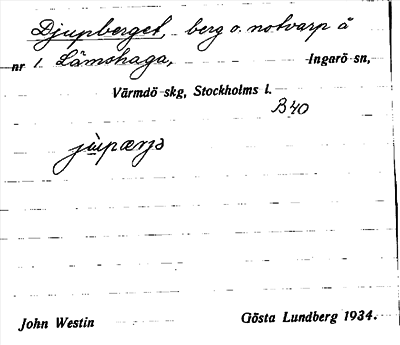 Djupberget, berg o. notvarp å
nr 1. Lämshaga, Ingarö sn,
Värmdö skg, Stockholms l.
B40
jùpærjə
John Westin Gösta Lundberg 1934.